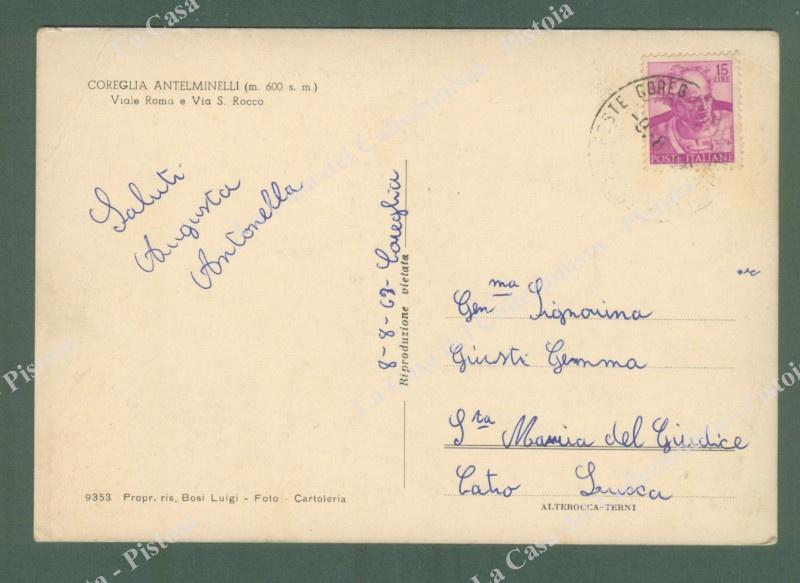 COREGLIA ANTELMINELLI (m. 600 s. m.)
Viale Roma e Via S. Rocco
Saluti
Augusta
Antonella
8-8-63- Coreglia
Riproduzione vietata
15
LIRE
POSTE ITALIANE
POSTE COREG
-9.8
Gen.ma Signorina
Giusti Gemma
S.ta Maria del Giudice
Lucca
9353 Propr. ris. Bosi Luigi - Foto - Cartoleria
ALTEROCCA-TERNI
La Casa del Collezionista - Pistoia